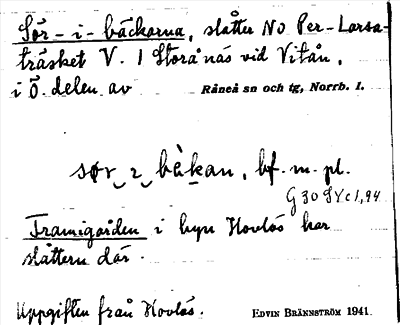 Sör-i-bäckarna, slåtter NO Per-Larsa-
träsket V. I Storånäs vid Vitån,
i Ö. delen av Råneå sn och tg, Norrb. l.
sør ɩ bèkan, bf. m. pl.
G 30 SV c 1,94
Framigården i byn Hovlös har
slåttern där.
Uppgiften från Hovlös. EDVIN BRÄNNSTRÖM 1941.